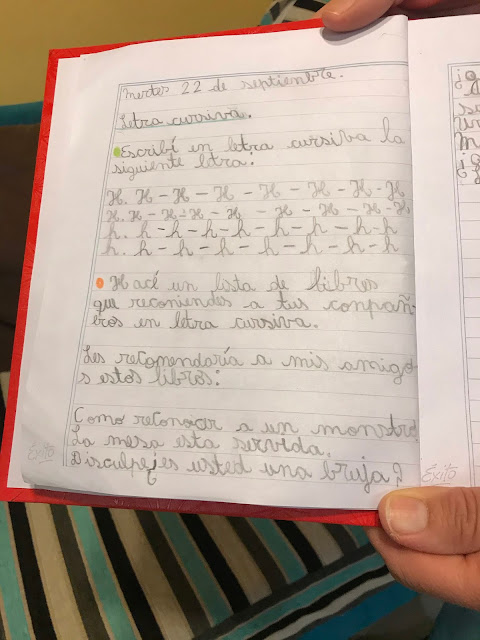 Mertes 22 de septiembre.
Letra cursiva.
Escribí en letra cursiva la
siguiente ltra:
H. H - H - H - H - H - H - H
H. H - H - H - H - H - H - H - H
h. h - h - h - h - h - h - h - h
h. h - h - h - h - h - h - h
Hacé un lista de libros
que reconiendes a tus conpañ-
eros en letra cursiva.
Les recomendaría a mis amigo
s estos libros:
Como reconocer a un monstro
La mesa esta servida.
Disculpe¿es usted una bruja?
Exito
Exito